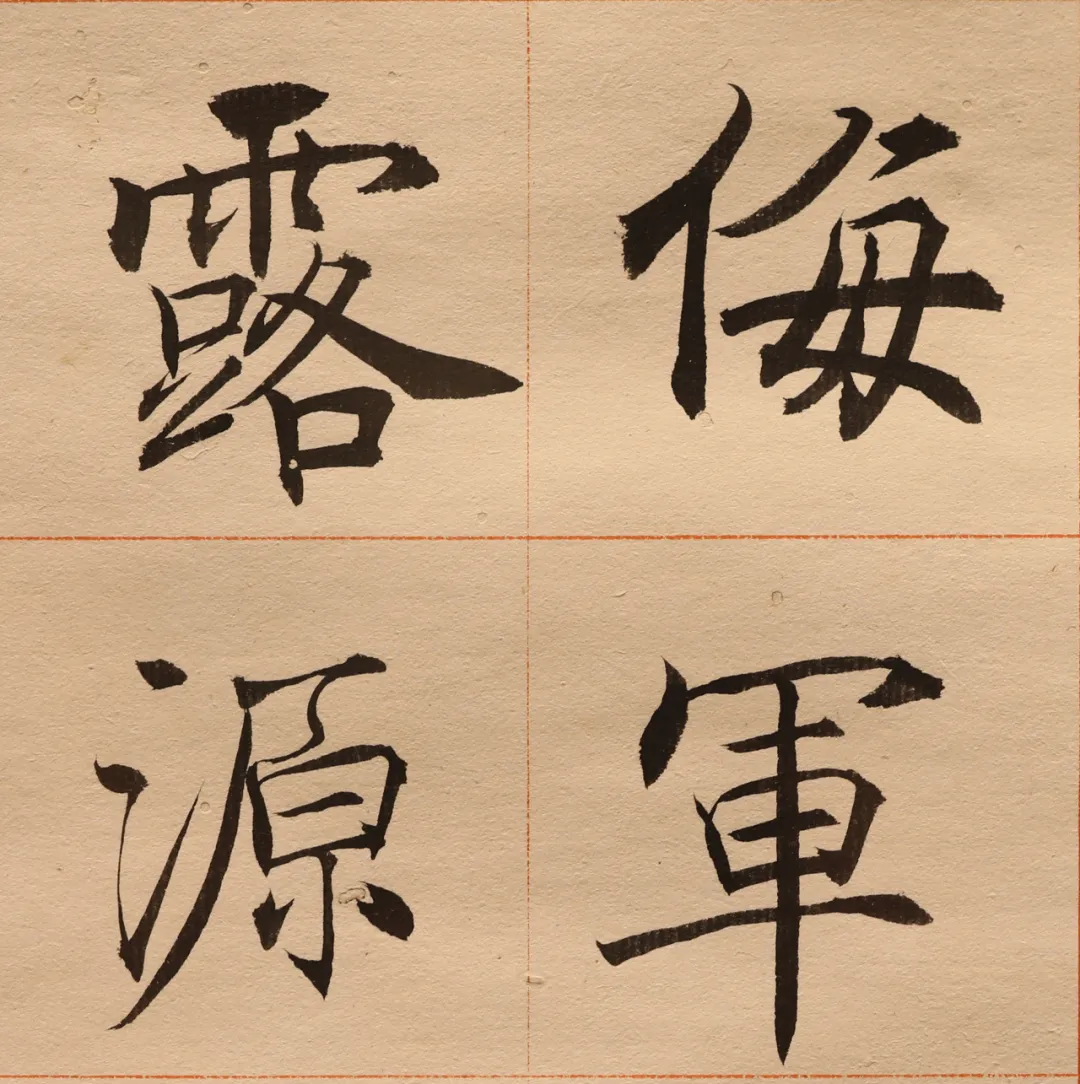 侮軍
露源